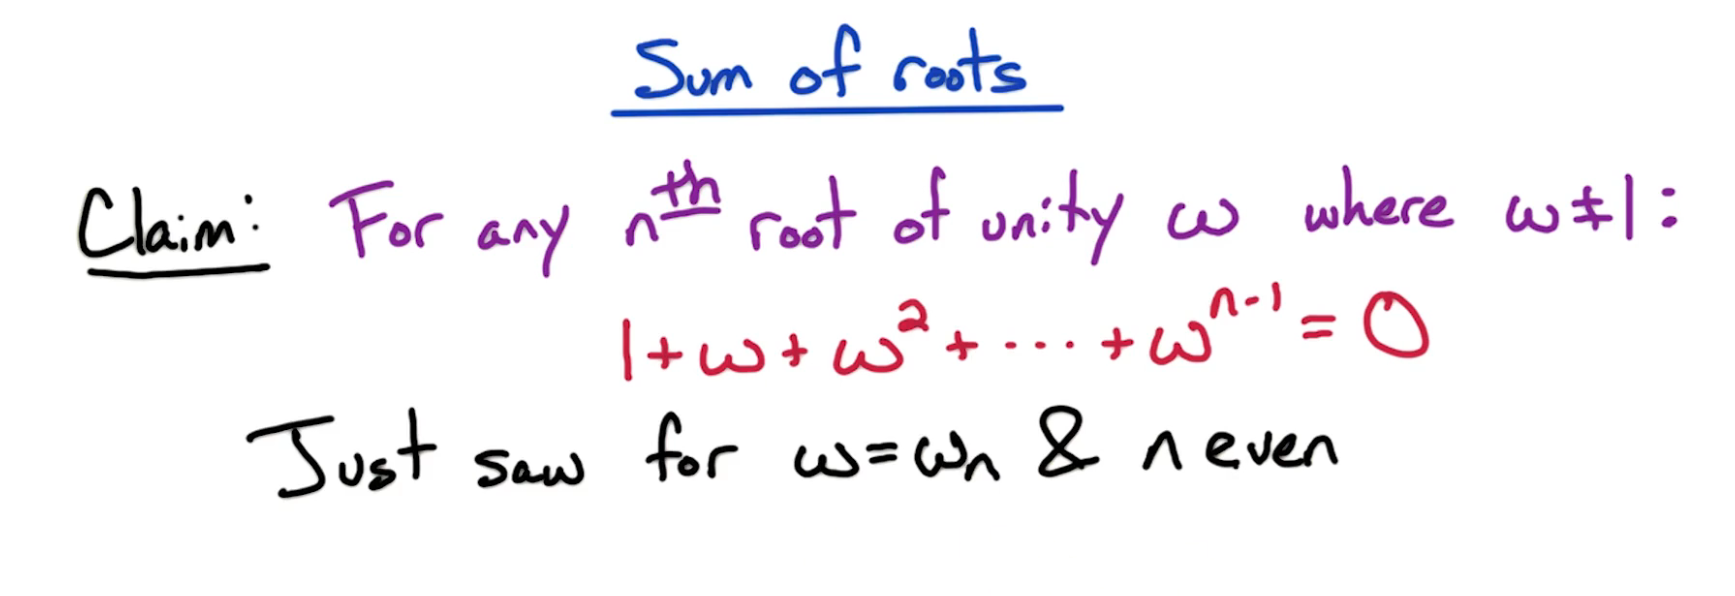 Sum of roots
Claim: For any nᵗʰ root of unity ω where ω ≠ 1:
1 + ω + ω² + ···· + ωⁿ⁻¹ = 0
Just saw for ω = ωₙ & n even